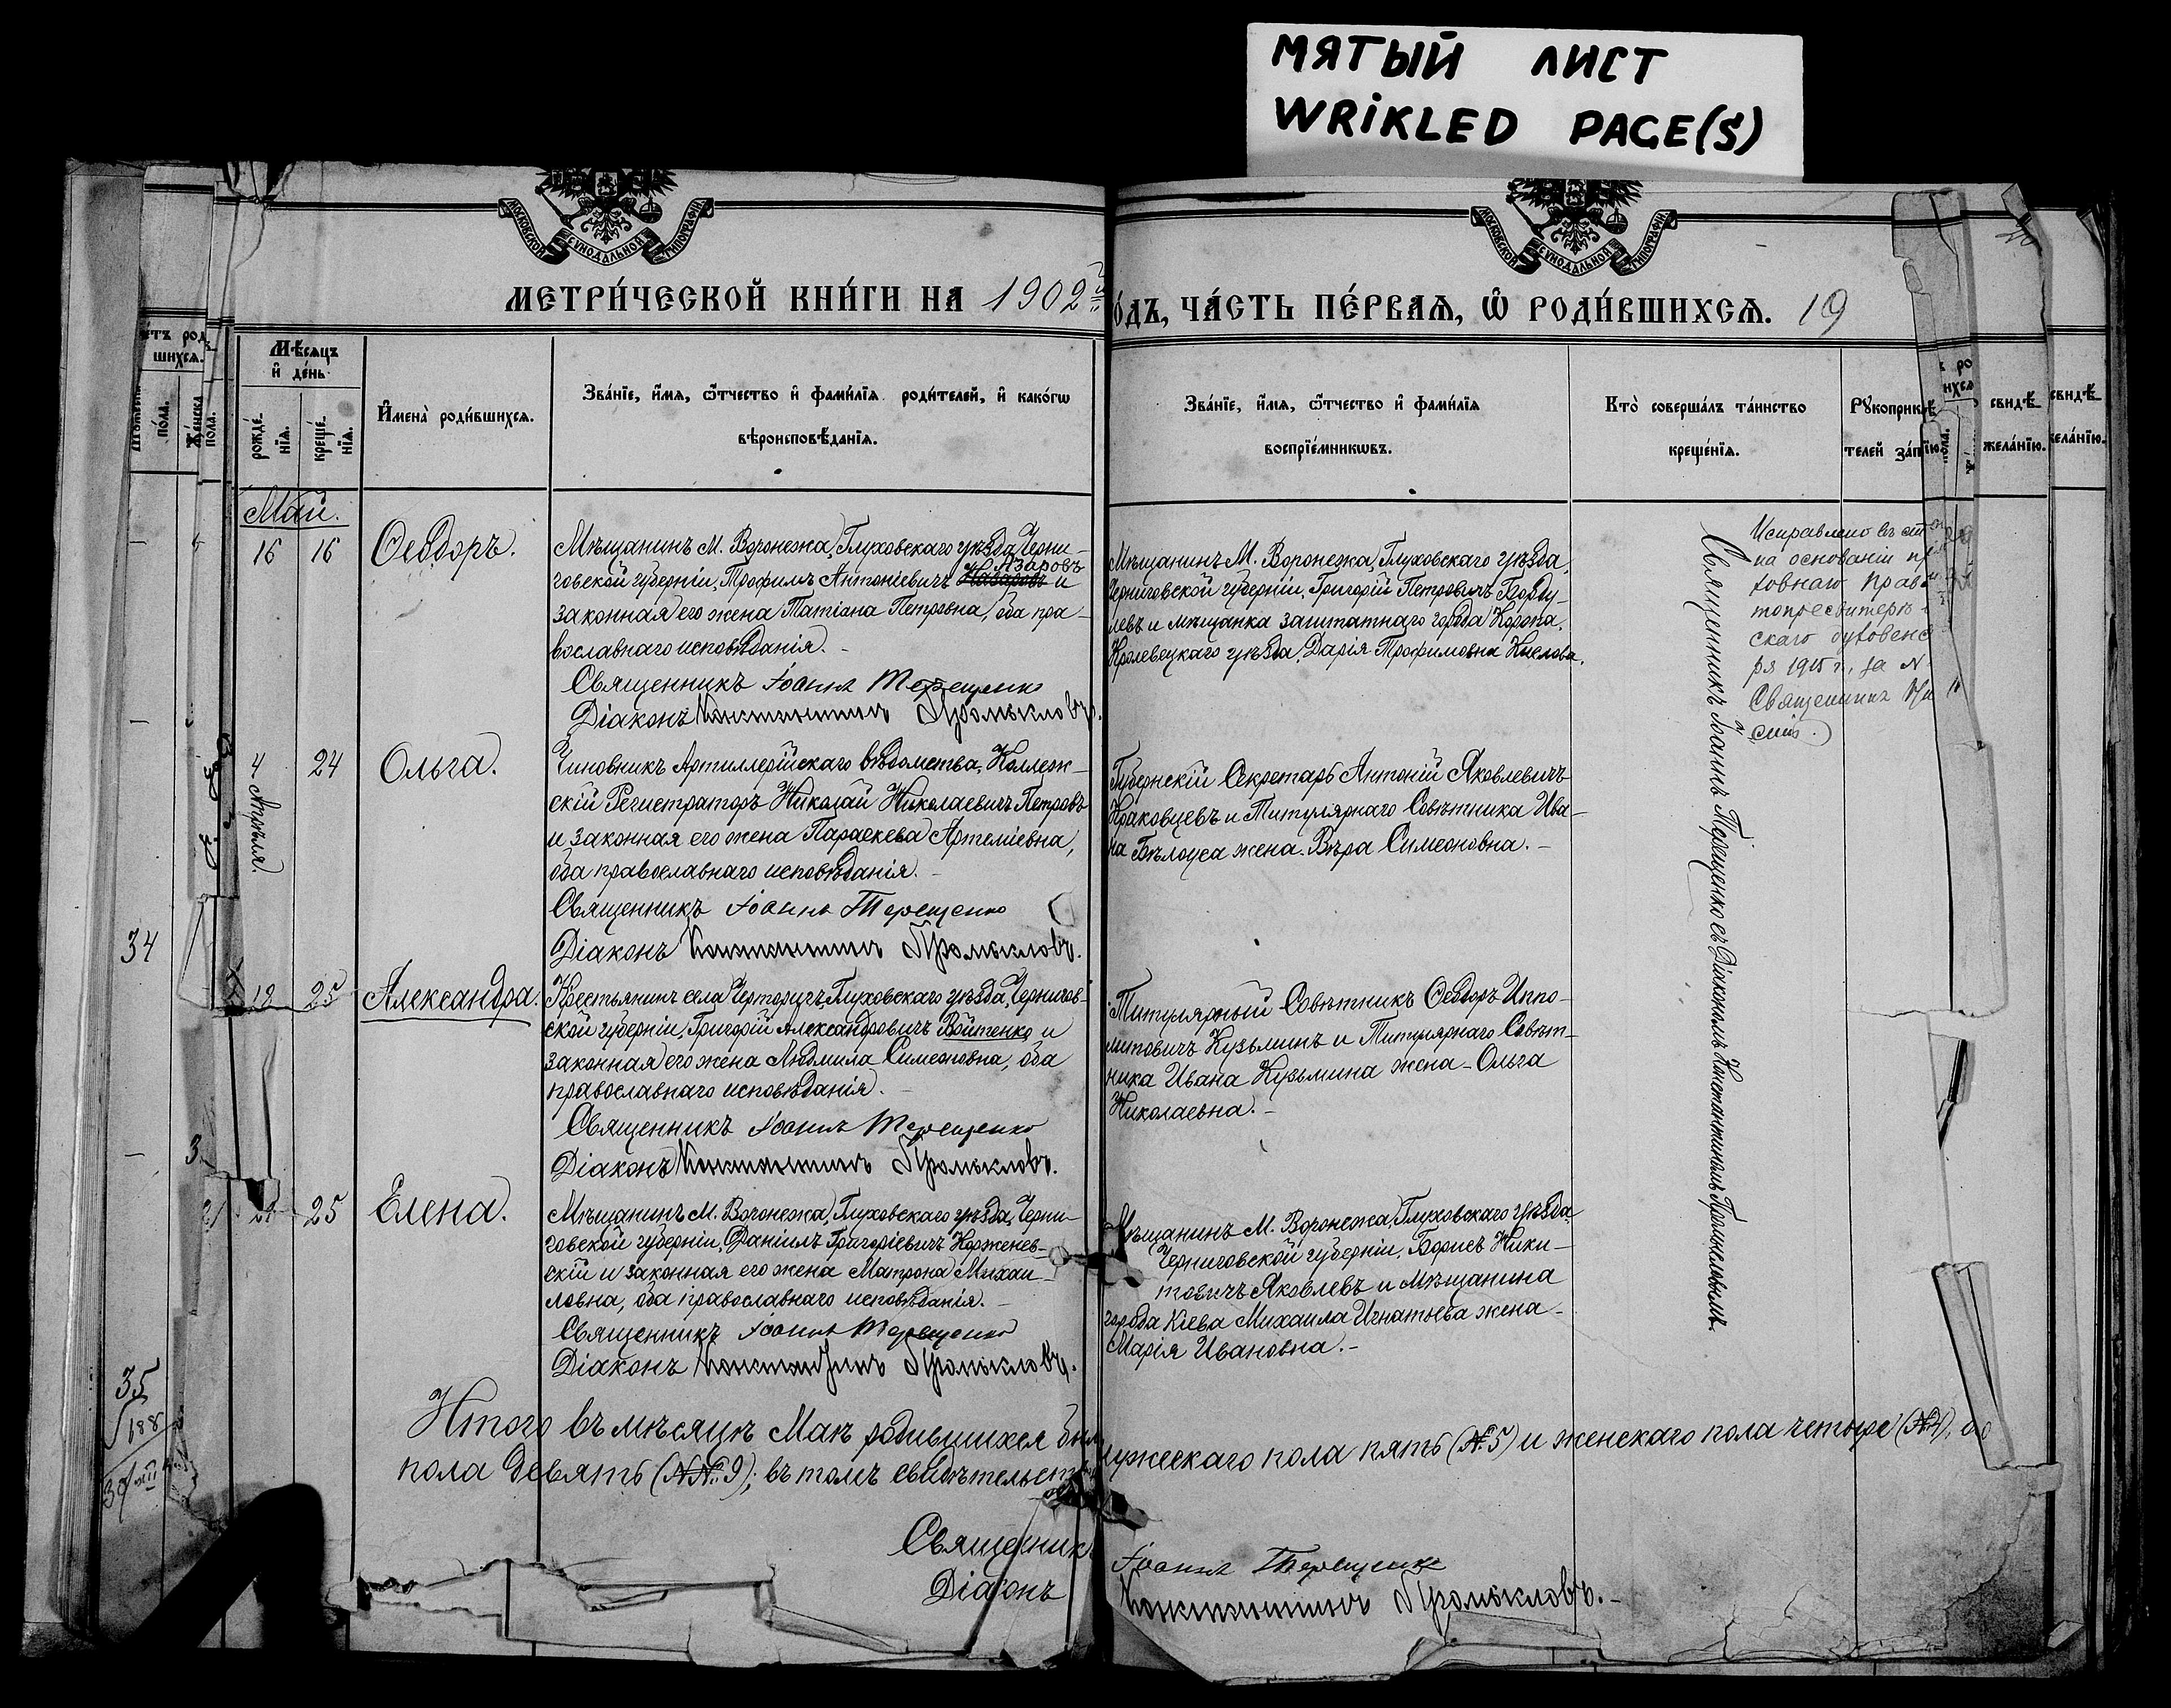 МЯТЫЙ ЛИСТ
WRiKLED PAGE(S)
МОСКОВСКОЙ СѴНОДАЛЬНОЙ ТИПОГРАФІИ
МОСКОВСКОЙ СѴНОДАЛЬНОЙ ТИПОГРАФІИ
МЕТРИ́ЧЕСКОЙ КНИ́ГИ НА 1902й
ОДЪ, ЧА́СТЬ ПЕ́РВАѦ, Ѿ РОДИ́ВШИХСѦ. 19
Мѣсяцъ и де́нь
рожде́-нїя.
креще́-нїя.
И҆мена̀ роди́вшихся.
Зва́нїе, и҆́мя, ѻ҆́тчество и҆ фамѝлїя роди́телей, и҆ како́гѡ
вѣроисповѣ́данїя.
Зва́нїе, и҆́мя, ѻ҆́тчество и҆ фами́лїя
воспрїе́мникѡвъ.
Кто̀ соверша́лъ та́инство
креще́нїя.
Рꙋкоприк
телей за́п
свидѣ-
жела́нїю.
свидѣ-
жела́нїю.
Май.
16 16 Ѳеодоръ.
Мѣщанинъ М. Воронежа, Глуховскаго уѣзда, Черни-
Азаровъ
говской губерніи, Трофимъ Антоніевичъ Назаровъ и
законная его жена Татіана Петровна, оба пра-
вославнаго исповѣданія. -
Священникъ Іоаннъ Терещенко
Діаконъ Константинъ Промысловъ.
Мѣщанинъ М. Воронежа, Глуховскаго уѣзда,
Черниговской губерніи, Григорій Петровичъ
и мѣщанка заштатнаго города Коропа,
Кролевецкаго уѣзда, Дарія Трофимовна
Исправлено въ
на основаніи
ховнаго
скаго духовенс
ря 1915 г., за №
Священникъ
4 Апрѣля. 24 Ольга.
Чиновникъ Артиллерійскаго вѣдомства, Коллеж-
скій Регистраторъ Николай Николаевичъ Петровъ
и законная его жена Параскева Артеміевна,
оба православнаго исповѣданія. -
Священникъ Іоаннъ Терещенко
Діаконъ Константинъ Промысловъ.
Губернскій Секретарь Антоній Яковлевичъ
Краковцевъ и Титулярнаго Совѣтника Ива-
на Бѣлоуса жена Вѣра Симеоновна. -
34
25 Александра.
Крестьянинъ села Черторигъ, Глуховскаго уѣзда, Чернигов-
ской губерніи, Григорій Александровичъ Войтенко и
законная его жена Людмила Симеоновна, оба
православнаго исповѣданія. -
Священникъ Іоаннъ Терещенко
Діаконъ Константинъ Промысловъ.
Титулярный Совѣтникъ Ѳеодоръ Иппо-
литовичъ Кузьминъ и Титулярнаго Совѣт-
ника Ивана Кузьмина жена - Ольга
Николаевна. -
25 Елена.
Мѣщанинъ М. Воронежа, Глуховскаго уѣзда, Черни-
говской губерніи, Даніилъ Григоріевичъ Корженев-
скій и законная его жена Матрона Михаи-
ловна, оба православнаго исповѣданія. -
Священникъ Іоаннъ Терещенко
Діаконъ Константинъ Промысловъ.
Мѣщанинъ М. Воронежа, Глуховскаго уѣзда,
Черниговской губерніи, Борисъ Ники-
товичъ Яковлевъ и мѣщанина
города Кіева Михаила Игнатьева жена -
Марія Ивановна. -
Священникъ Іоаннъ Терещенко съ Діакономъ Константиномъ Промысловымъ.
35
Итого въ мѣсяцѣ Маѣ родившихся мужескаго пола пять (№ 5) и женскаго пола четыре (№ 4),
пола девять (№№ 9); въ томъ свидѣтельств
Священникъ Іоаннъ Терещенко
Діаконъ Константинъ Промысловъ. -